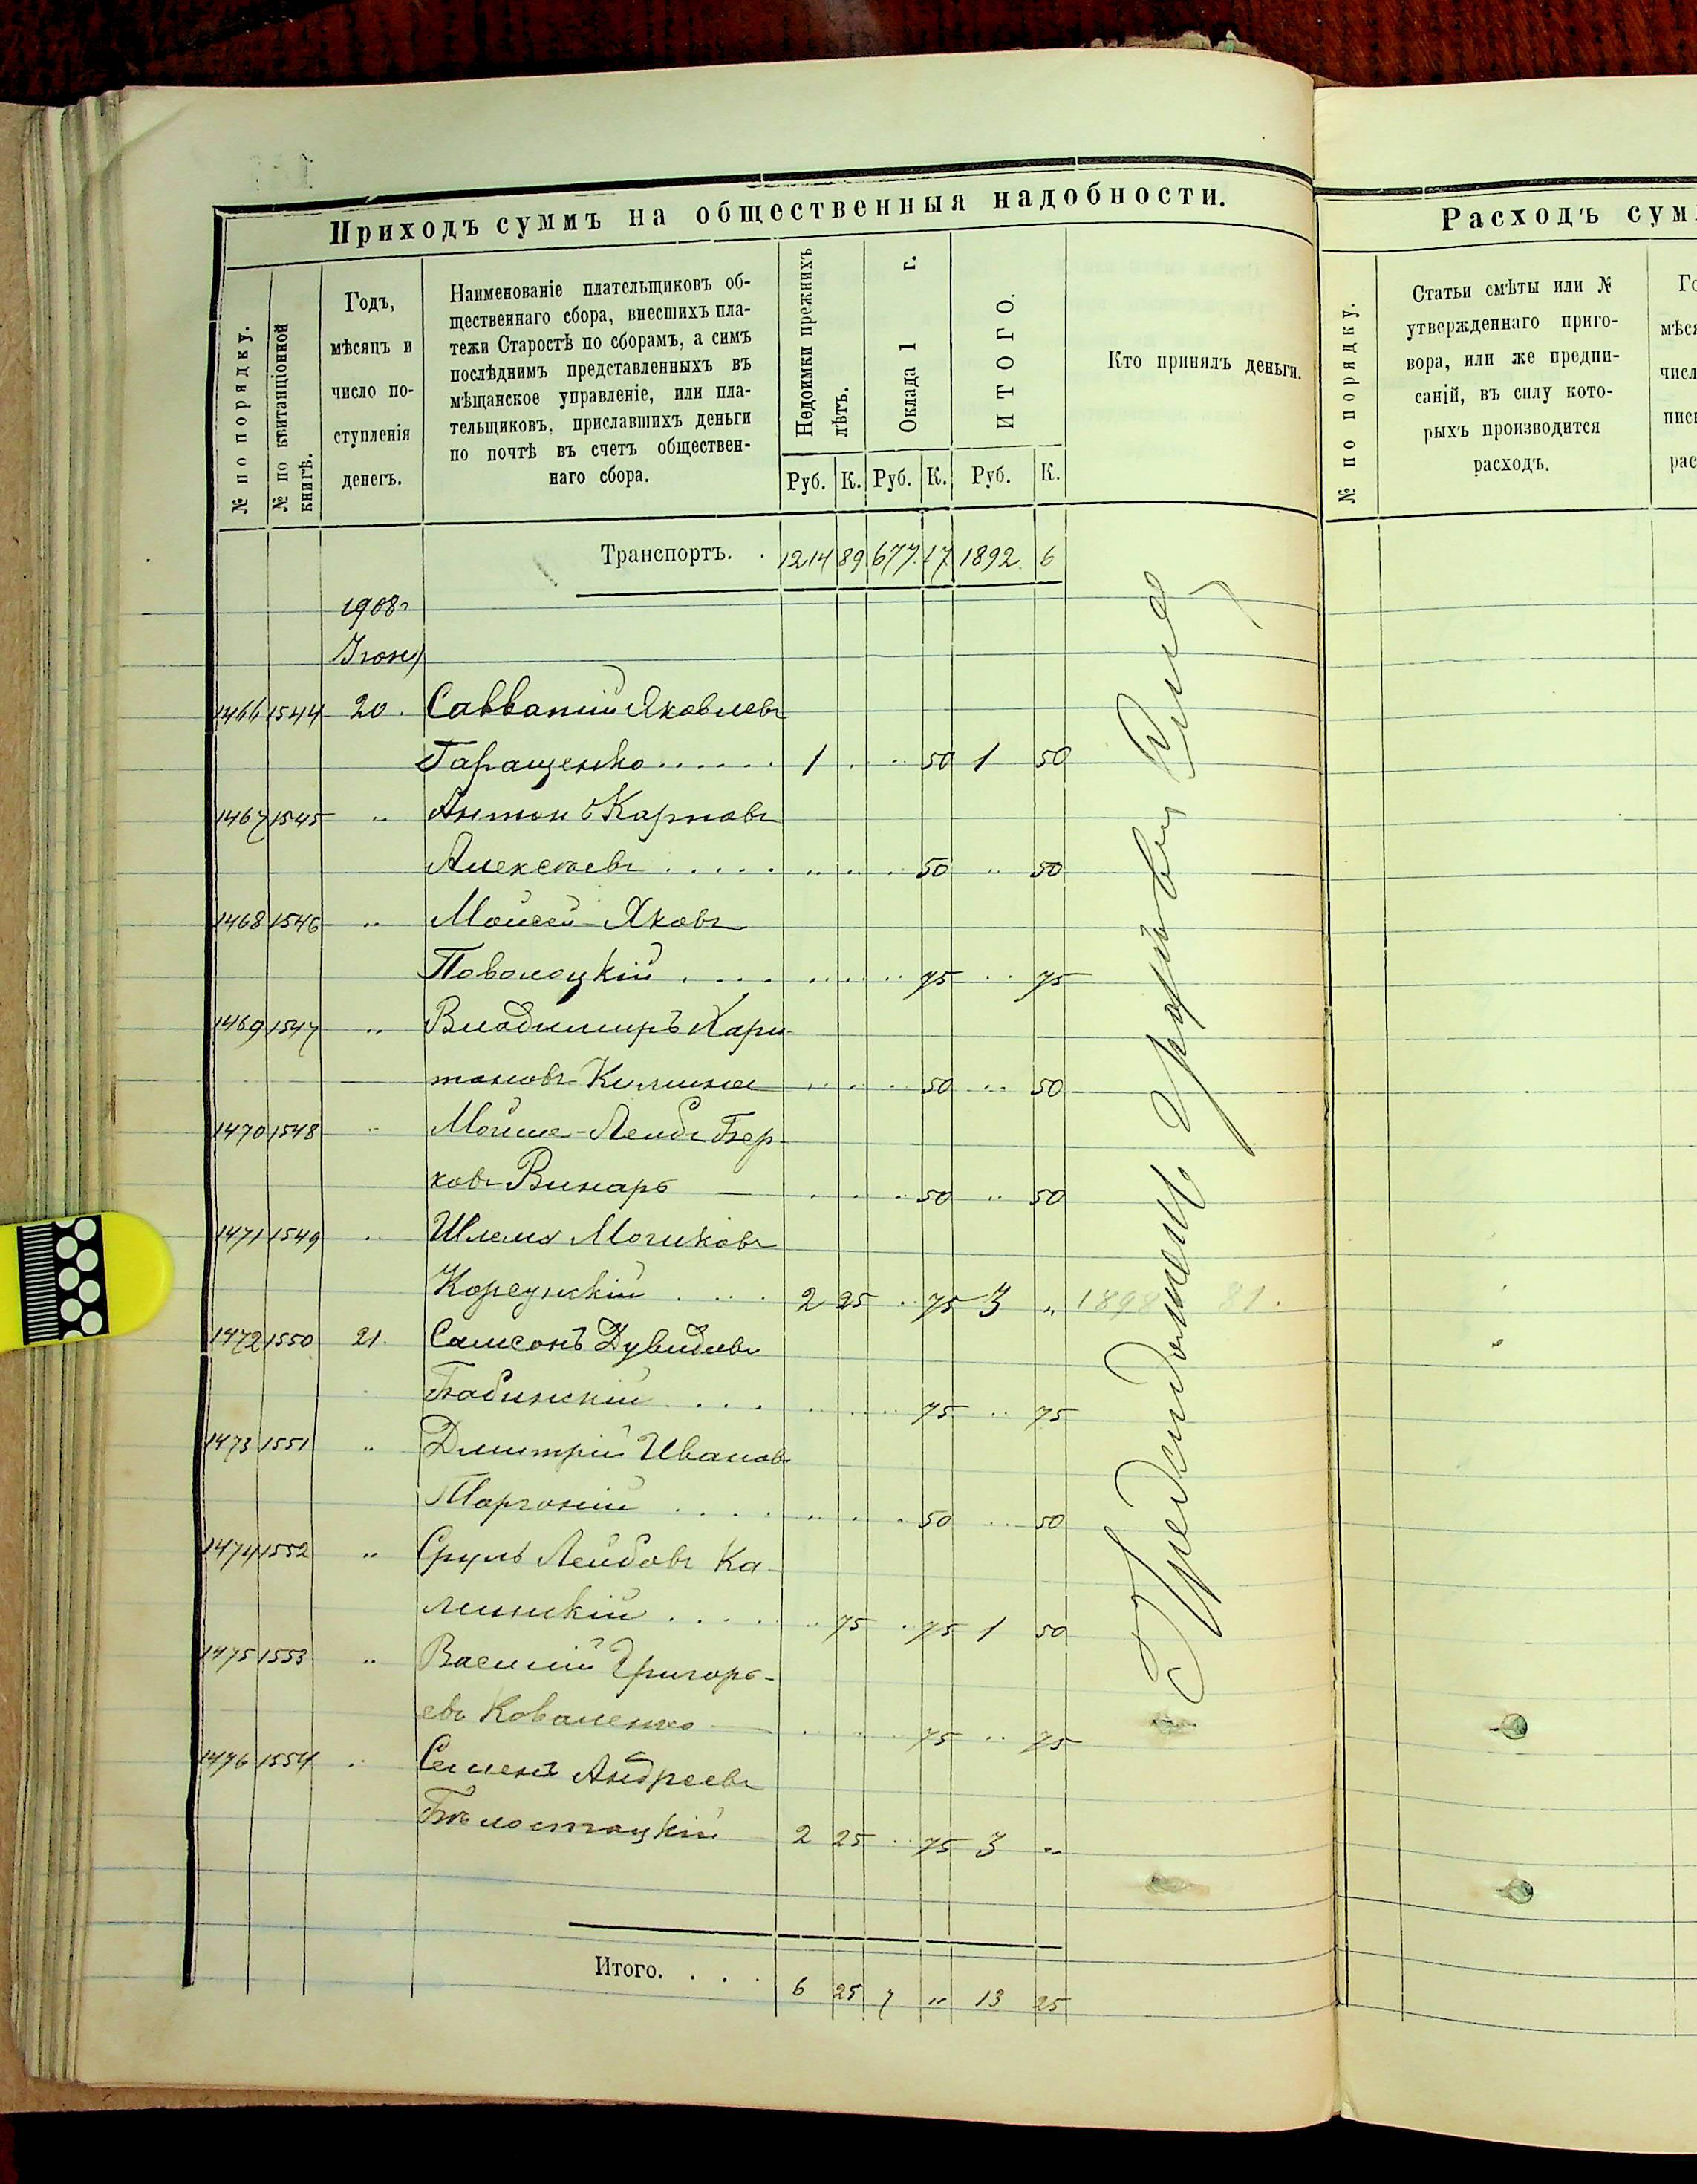 Приходъ суммъ на общественныя надобности.
№ по порядку.
№ по квитанціонной книгѣ.
Годъ,
мѣсяцъ и
число по-
ступленія
денегъ.
Наименованіе плательщиковъ об-
щественнаго сбора, внесшихъ пла-
тежи Старостѣ по сборамъ, а симъ
послѣднимъ представленныхъ въ
мѣщанское управленіе, или пла-
тельщиковъ, приславшихъ деньги
по почтѣ въ счетъ обществен-
наго сбора.
Недоимки прежнихъ
лѣтъ.
Оклада 1 г.
ИТОГО.
Руб. К. Руб. К. Руб. К.
Кто принялъ деньги.
Транспортъ. . 1214 89 677 17 1892 6
1908 г
Іюня
1466 1544 20. Савватий Яковлевъ
Таращенко...... 1 50 1 50
1467 1545 " Антонъ Карповъ
Алексѣевъ ..... " 50 " 50
1468 1546 " Мойсей Яковъ
Поволоцкій .... 75 75
1469 1547 " Владимиръ Хари-
тоновъ 50 " 50
1470 1548 " Мойше-Лейбъ Бер-
ковъ Винаръ — 50 " 50
1471 1549 " Шлема
Корсунскій .... 2 25 75 3 " 1898 81.
1472 1550 21. Самсонъ Дувидовъ
Бабинскій .... 75 75
1473 1551 " Дмитрій Ивановъ
50 50
1474 1552 " Сруль Лейбовъ Ка-
линскій .... 75 75 1 50
1475 1553 " Василій Григорь-
евъ Коваленко 75 75
1476 1554 " Семенъ Андреевъ
Бѣлостоцкій 2 25 75 3 "
Итого. . . . 6 25 7 " 13 25
Расходъ сум
№ по порядку.
Статьи смѣты или №
утвержденнаго приго-
вора, или же предпи-
саній, въ силу кото-
рыхъ производится
расходъ.
Го
мѣся
числ
писк
рас